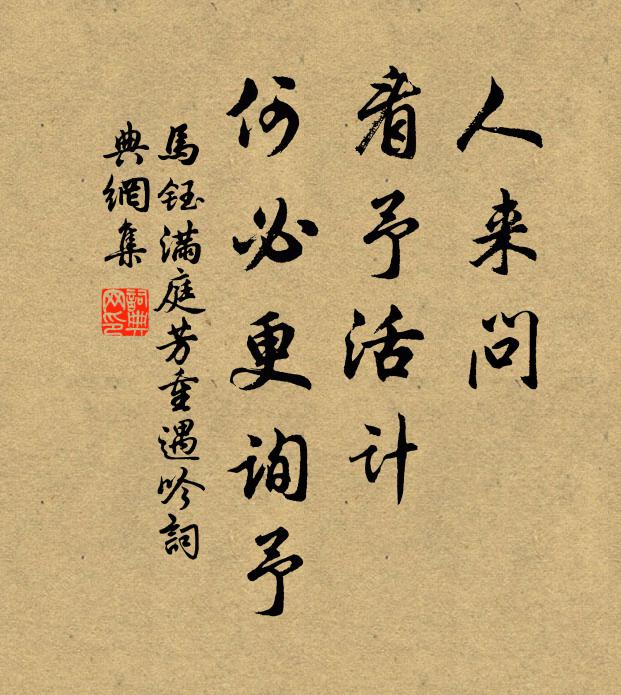 人来问
看予活计
何必更询予
馬鈺满庭芳重遇吟詞
典網集
詞典
网印